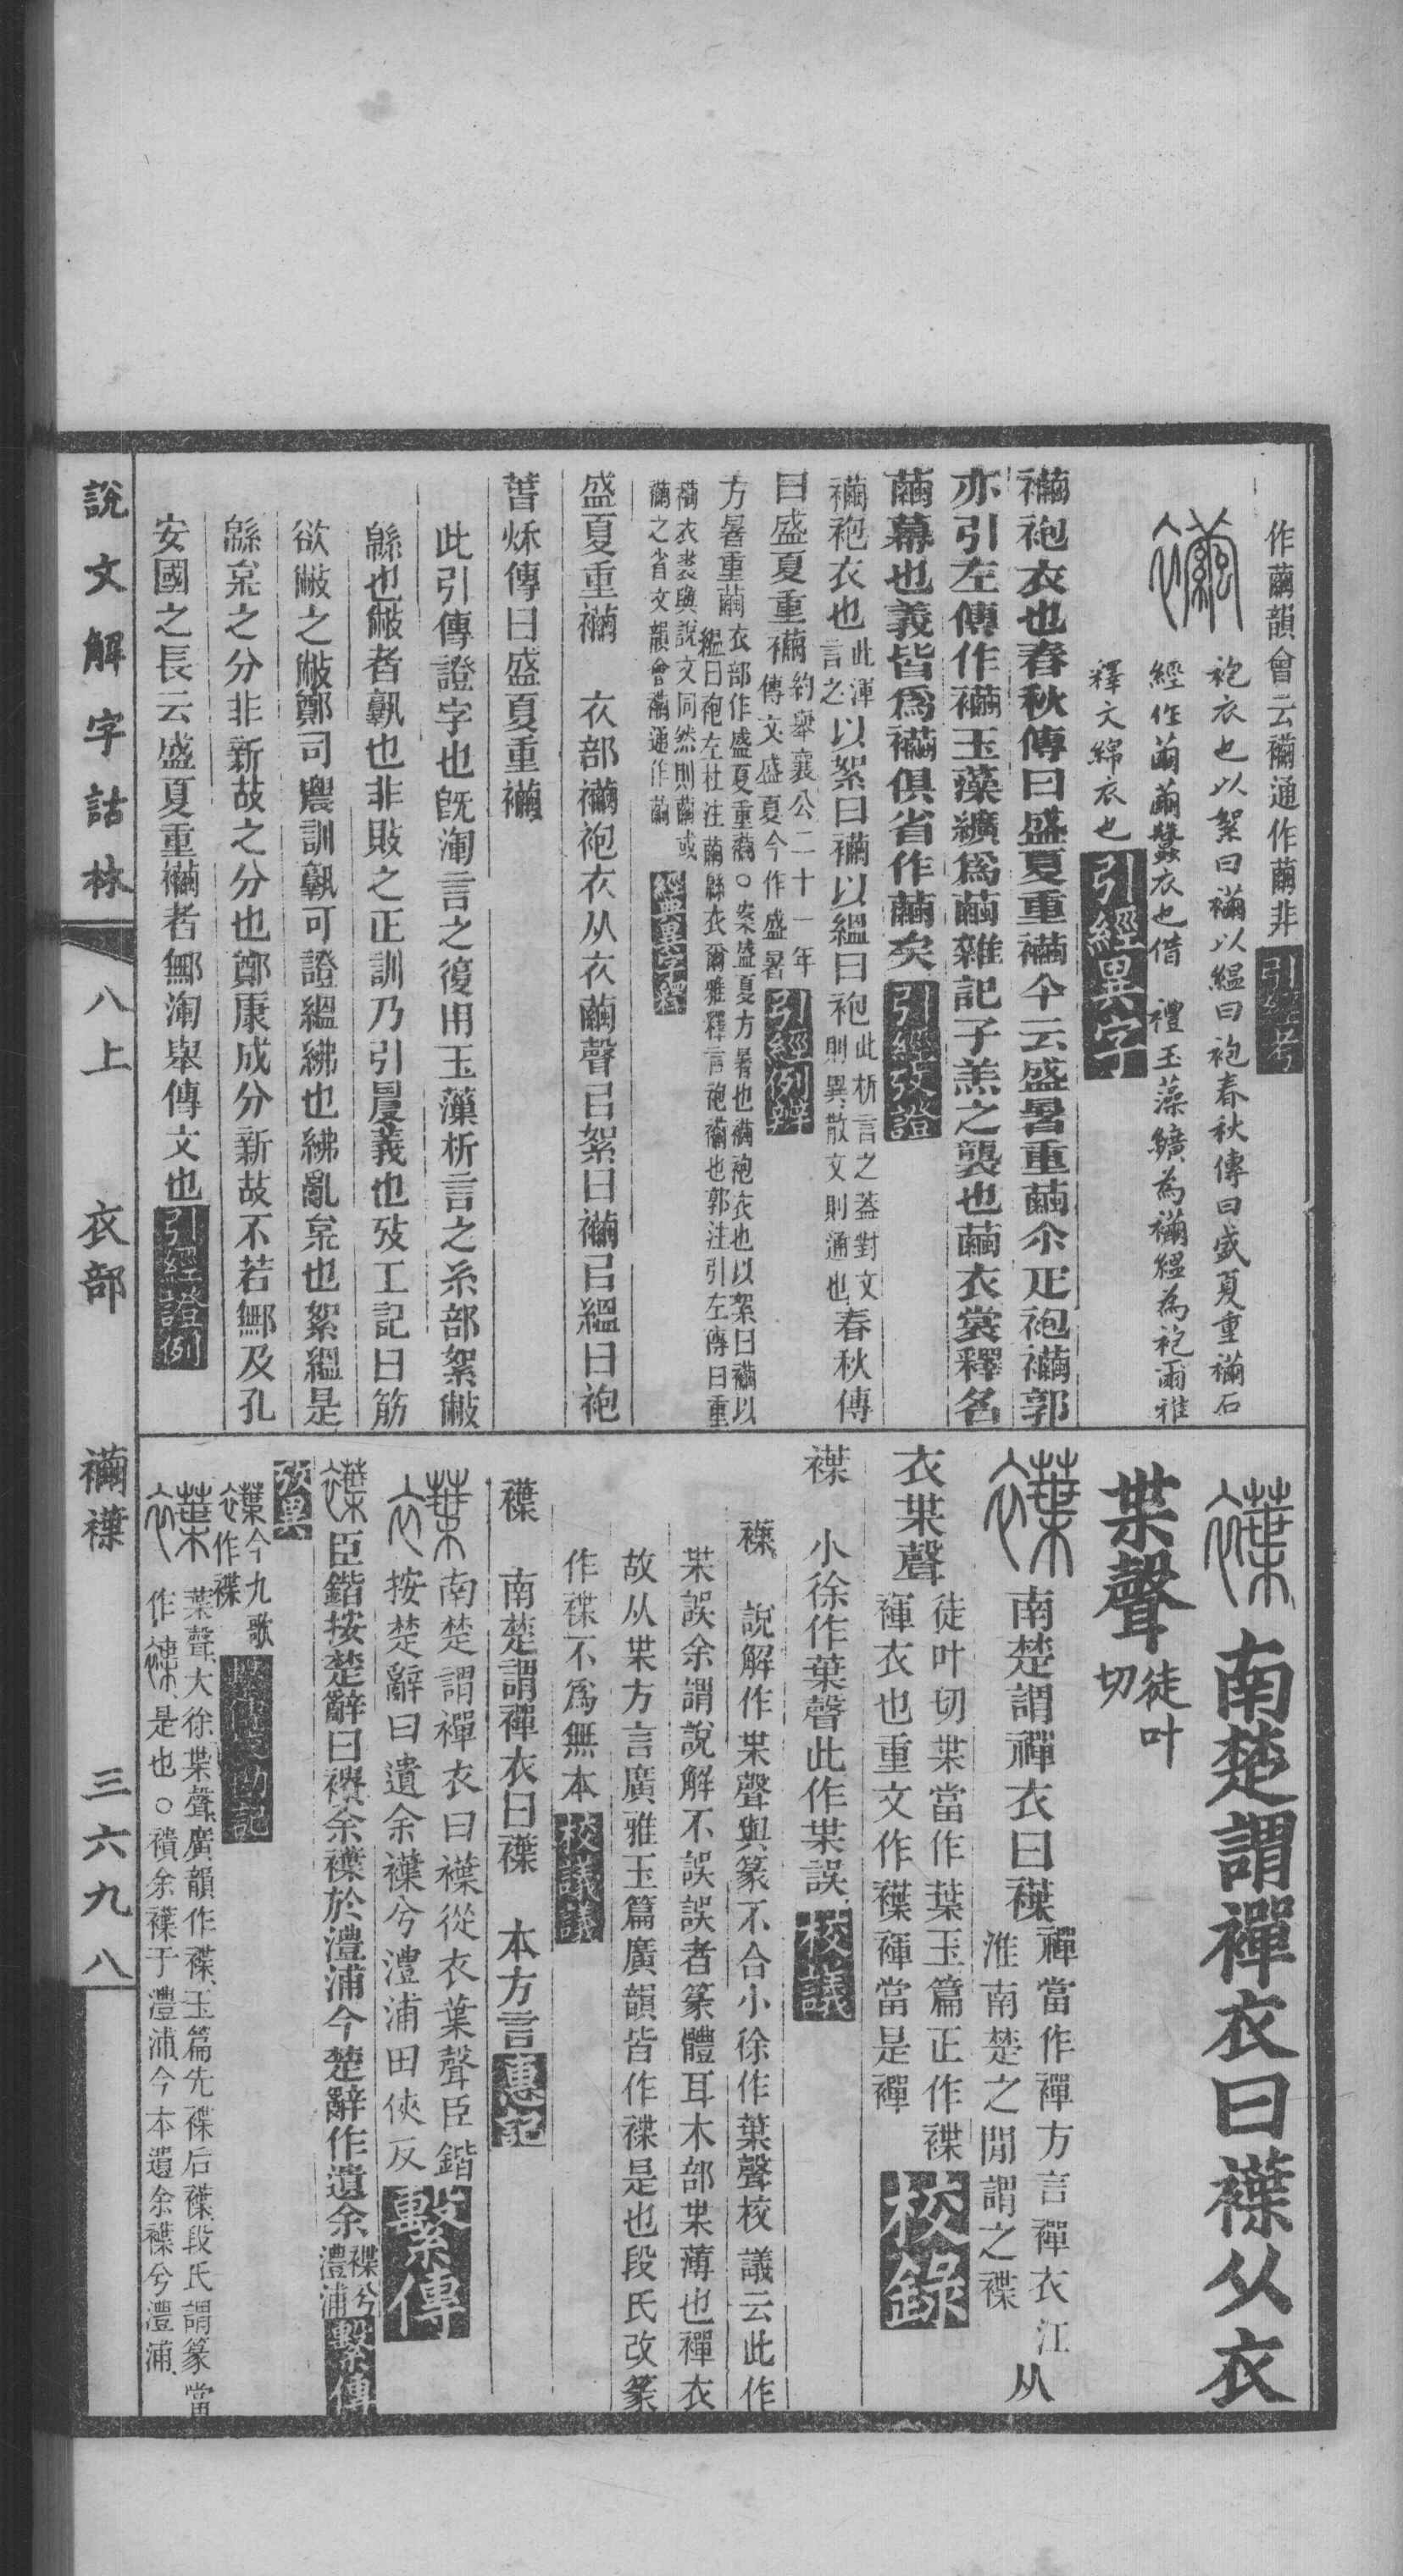 作繭韻會云襺通作繭非引經考
袍衣也以絮曰襺以縕曰袍春秋傳曰盛夏重襺石
經作繭繭蠶衣也借 禮玉藻纊為襺縕為袍爾雅
釋文綿衣也引經異字
襺袍衣也春秋傳曰盛夏重襺今云盛暑重繭尒疋袍襺郭
亦引左傳作襺玉藻纊爲繭雜記子羔之襲也繭衣裳釋名
繭幕也義皆爲襺俱省作繭矣引經攷證
襺袍衣也此渾言之以絮曰襺以縕曰袍此析言之蓋對文則異散文則通也春秋傳
曰盛夏重襺約舉襄公二十一年傳文盛夏今作盛暑引經例辨
方暑重繭衣部作盛夏重襺○案盛夏方暑也襺袍衣也以絮曰襺以
縕曰袍左杜注繭緜衣爾雅釋言袍襺也郭注引左傳曰重
襺衣裘與說文同然則繭或
襺之省文韻會襺通作繭
盛夏重襺 衣部襺袍衣从衣繭聲㠯絮曰襺㠯縕曰袍
萅秌傳曰盛夏重襺
此引傳證字也旣渾言之復用玉藻析言之糸部絮敝
緜也敝者㲈也非敗之正訓乃引㫳義也攷工記曰筋
欲敝之敝鄭司農訓㲈可證縕紼也紼亂枲也絮縕是
緜枲之分非新故之分也鄭康成分新故不若鄦及孔
安國之長云盛夏重襺者鄦渾舉傳文也引經證例
南楚謂襌衣曰褋从衣
枼聲徒叶切
南楚謂禪衣曰褋禪當作襌方言襌衣江淮南楚之閒謂之褋从
衣枼聲徒叶切枼當作葉玉篇正作褋襌衣也重文作褋當是襌校錄
褋 小徐作葉聲此作枼誤校議
褋 說解作枼聲與篆不合小徐作葉聲校議云此作
枼誤余謂說解不誤誤者篆體耳木部枼薄也襌衣
故从枼方言廣雅玉篇廣韻皆作褋是也段氏改篆
作褋不爲無本校議議
褋 南楚謂襌衣曰褋 本方言惠記
南楚謂襌衣曰褋從衣葉聲臣鍇
按楚辭曰遺余褋兮澧浦田俠反繫傳
臣鍇按楚辭曰襟余褋於澧浦今楚辭作遺余褋兮澧浦繫傳
攷異
今九歌作褋
葉聲大徐枼聲廣韻作褋玉篇先褋后褋段氏謂篆當
作是也○襀余褋于澧浦今本遺余褋兮澧浦
說文解字詁林
八上 衣部 襺褋 三六九八